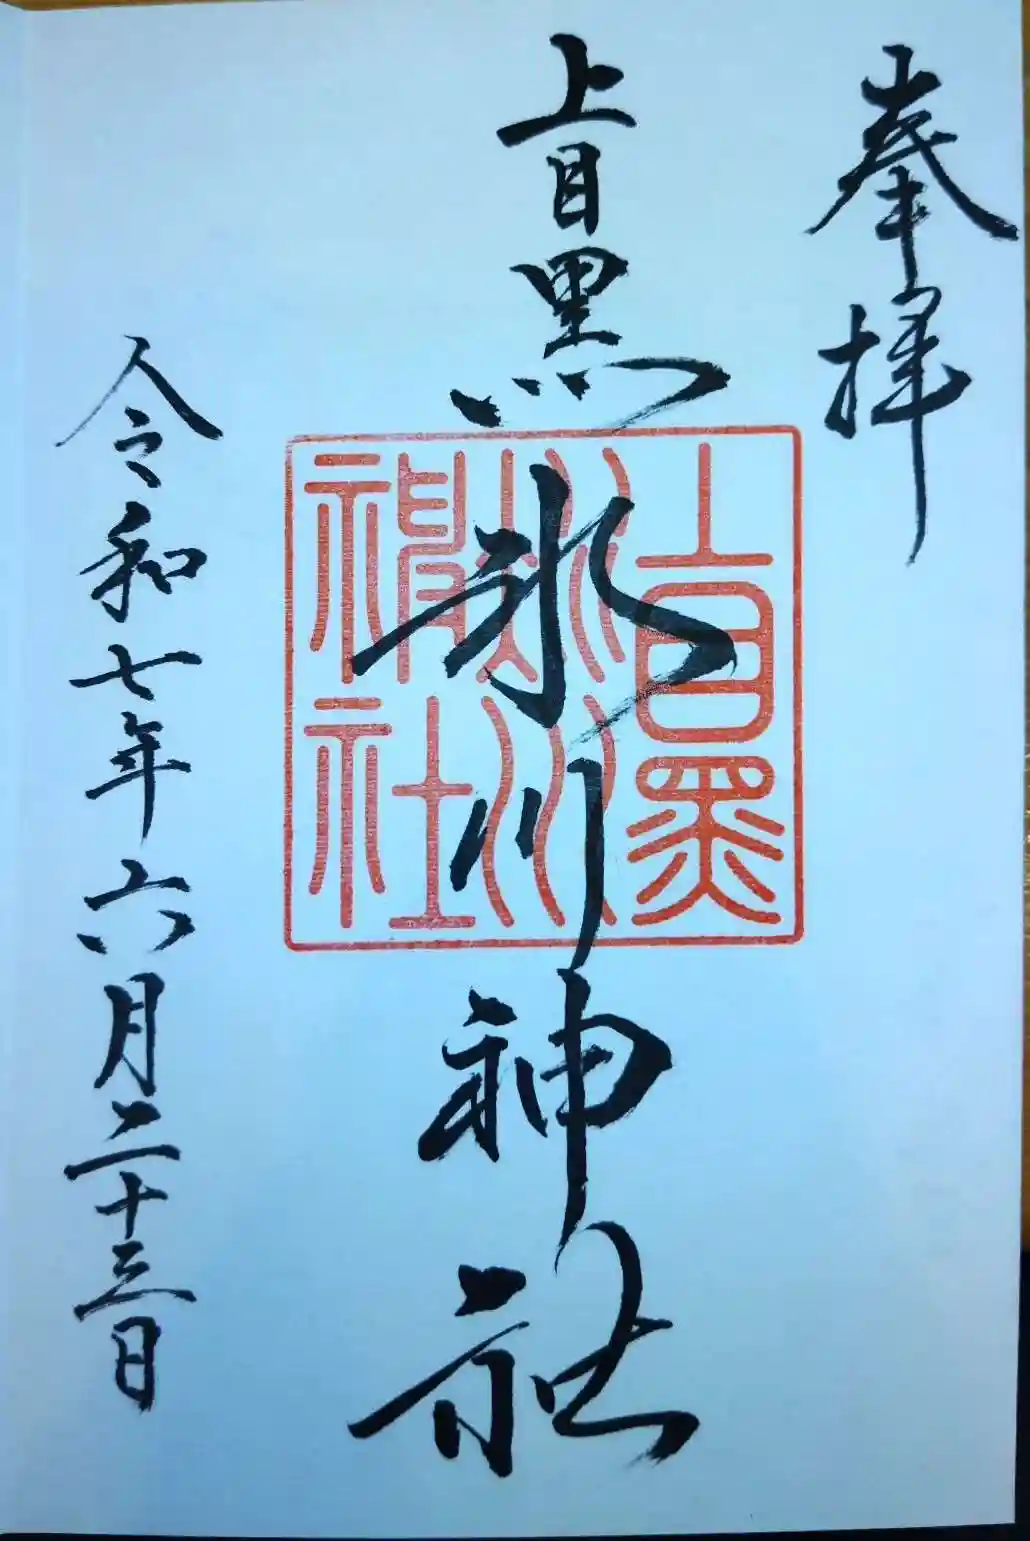 奉拝
上目黒氷川神社
上目黒
氷川
神社
令和七年六月二十三日